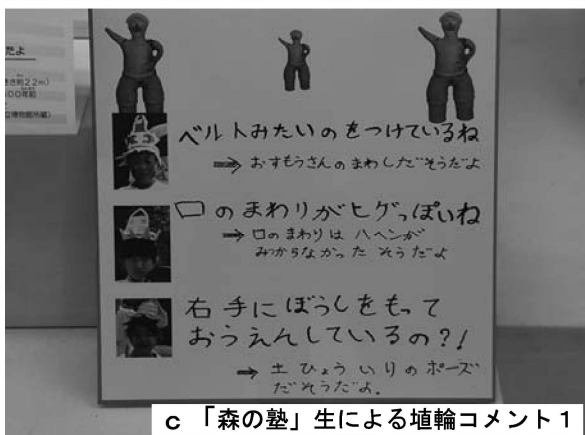 たよ
さ約22m)
00年前
立博物館所蔵)
ベルトみたいのをつけているね
⇒ おすもうさんのまわしだそうだよ
口のまわりがヒゲっぽいね
→ 口のまわりは ハヘンが
みつからなかった そうだよ
右手にぼうしをもって
おうえんしているの?!
→ 土ひょういりのポーズ
だそうだよ。
c 「森の塾」生による埴輪コメント1